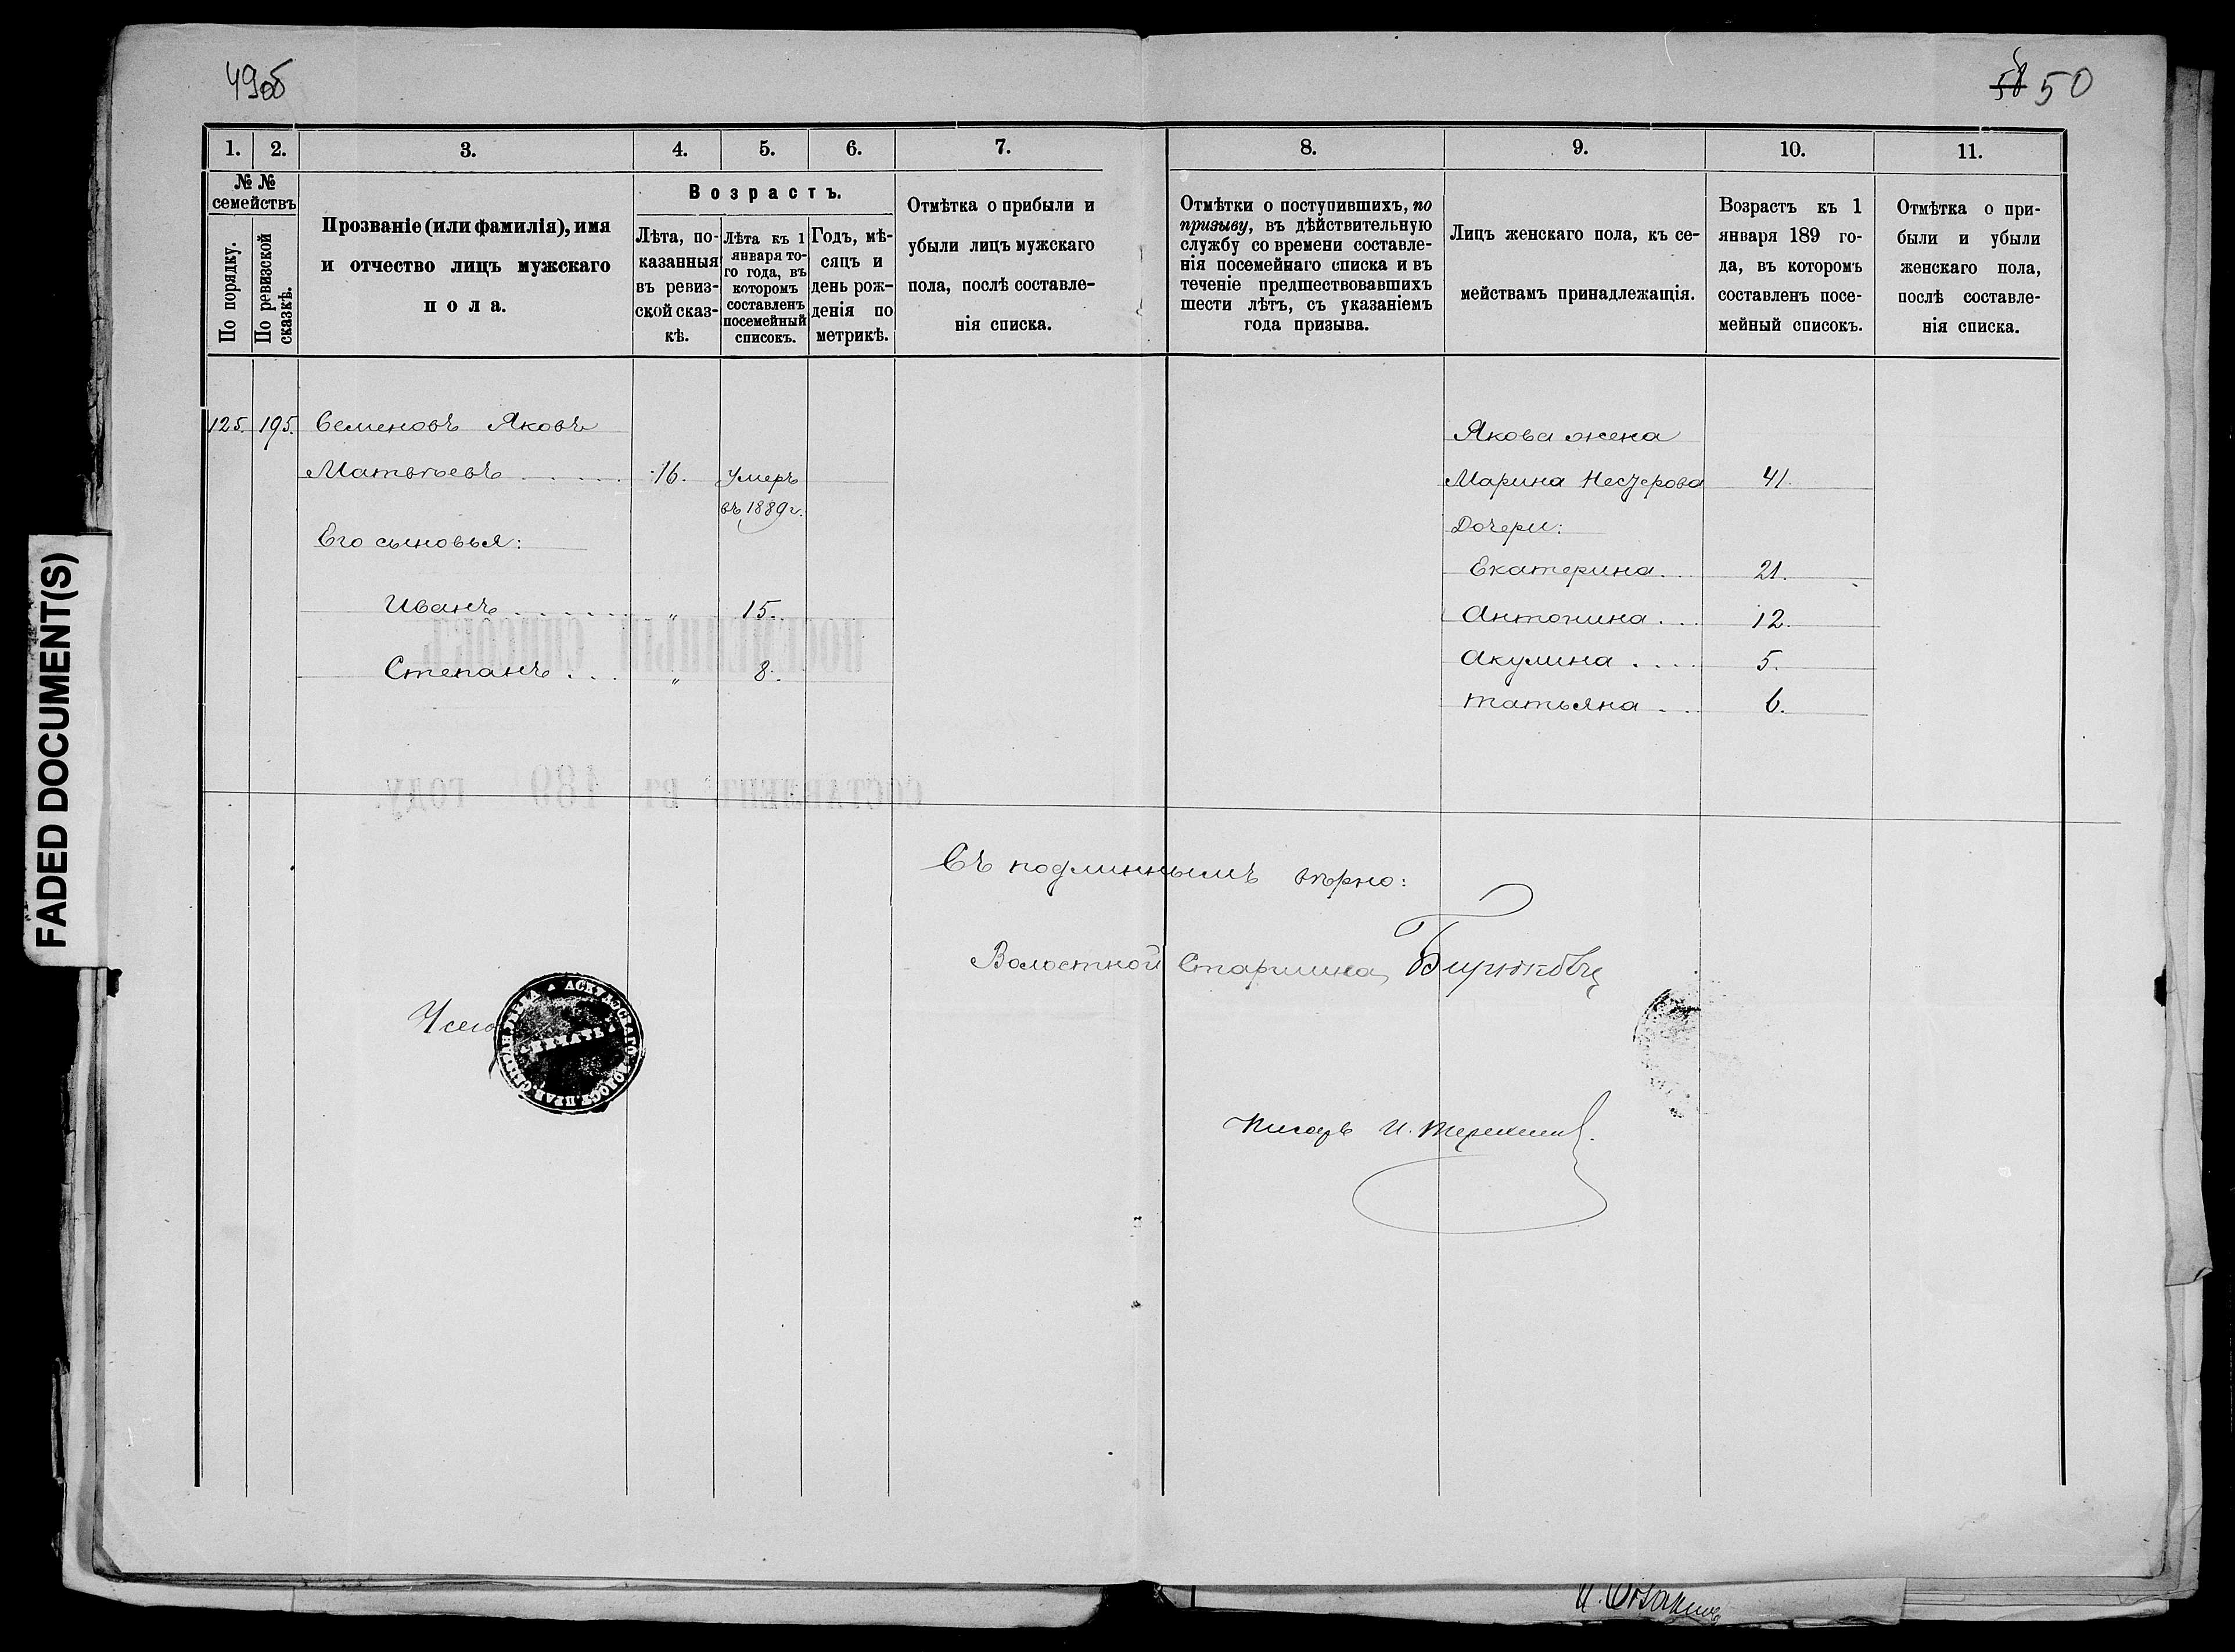 49об
58 50
FADED DOCUMENT(S)
1. 2. 3. 4. 5. 6. 7. 8. 9. 10. 11.
№ №
семействъ
По порядку.
По ревизской
сказкѣ.
Прозваніе (или фамилія), имя
и отчество лицъ мужскаго
пола.
Возрастъ.
Лѣта, по-
казанныя
въ ревиз-
ской сказ-
кѣ.
Лѣта къ 1
января то-
го года, въ
которомъ
составленъ
посемейный
списокъ.
Годъ, мѣ-
сяцъ и
день рож-
денія по
метрикѣ.
Отмѣтка о прибыли и
убыли лицъ мужскаго
пола, послѣ составле-
нія списка.
Отмѣтки о поступившихъ, по
призыву, въ дѣйствительную
службу со времени составле-
нія посемейнаго списка и въ
теченіе предшествовавшихъ
шести лѣтъ, съ указаніемъ
года призыва.
Лицъ женскаго пола, къ се-
мействамъ принадлежащія.
Возрастъ къ 1
января 189 го-
да, въ которомъ
составленъ посе-
мейный списокъ.
Отмѣтка о при-
были и убыли
женскаго пола,
послѣ составле-
нія списка.
125. 195. Семеновъ Яковъ
Матвѣевъ 16. Умеръ
въ 1889 г.
Его сыновья:
Иванъ „ 15.
Степанъ „ 8.
Якова жена
Марина Нестерова 41.
Дочери:
Екатерина 21.
Антонина 12.
Акулина 5.
Татьяна 6.
ПОСЕМЕЙНЫЙ СПИСОКЪ
СОСТАВЛЕНЪ ВЪ 189 ГОДУ.
Съ подлиннымъ вѣрно:
Волостной Старшина Бирюковъ
АСКУЛЬСКАГО ВОЛОСТ. ПРАВ.
ПЕЧАТЬ
Писарь И.